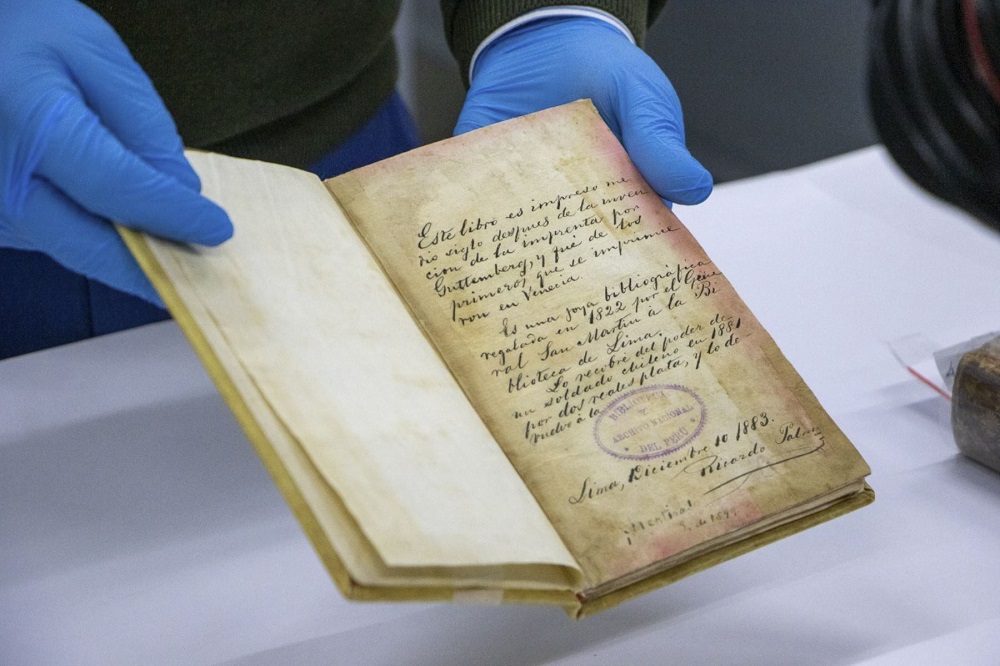 Este libro es impreso me
dio siglo despues de la inven
cion de la imprenta por
Guttemberg, y fué de los
primeros que se imprimie
ron en Venecia.
Es una joya bibliográfica
regalada en 1822 por el Gene
ral San Martin à la Bi
blioteca de Lima.
Lo recobré del poder de
un soldado chileno en 1881
por dos reales plata, y lo de
vuelvo à la
BIBLIOTECA
Y
ARCHIVO NACIONAL
DEL PERÚ
Lima, Diciembre 10 1883.
Ricardo Palma
¡Mentira!